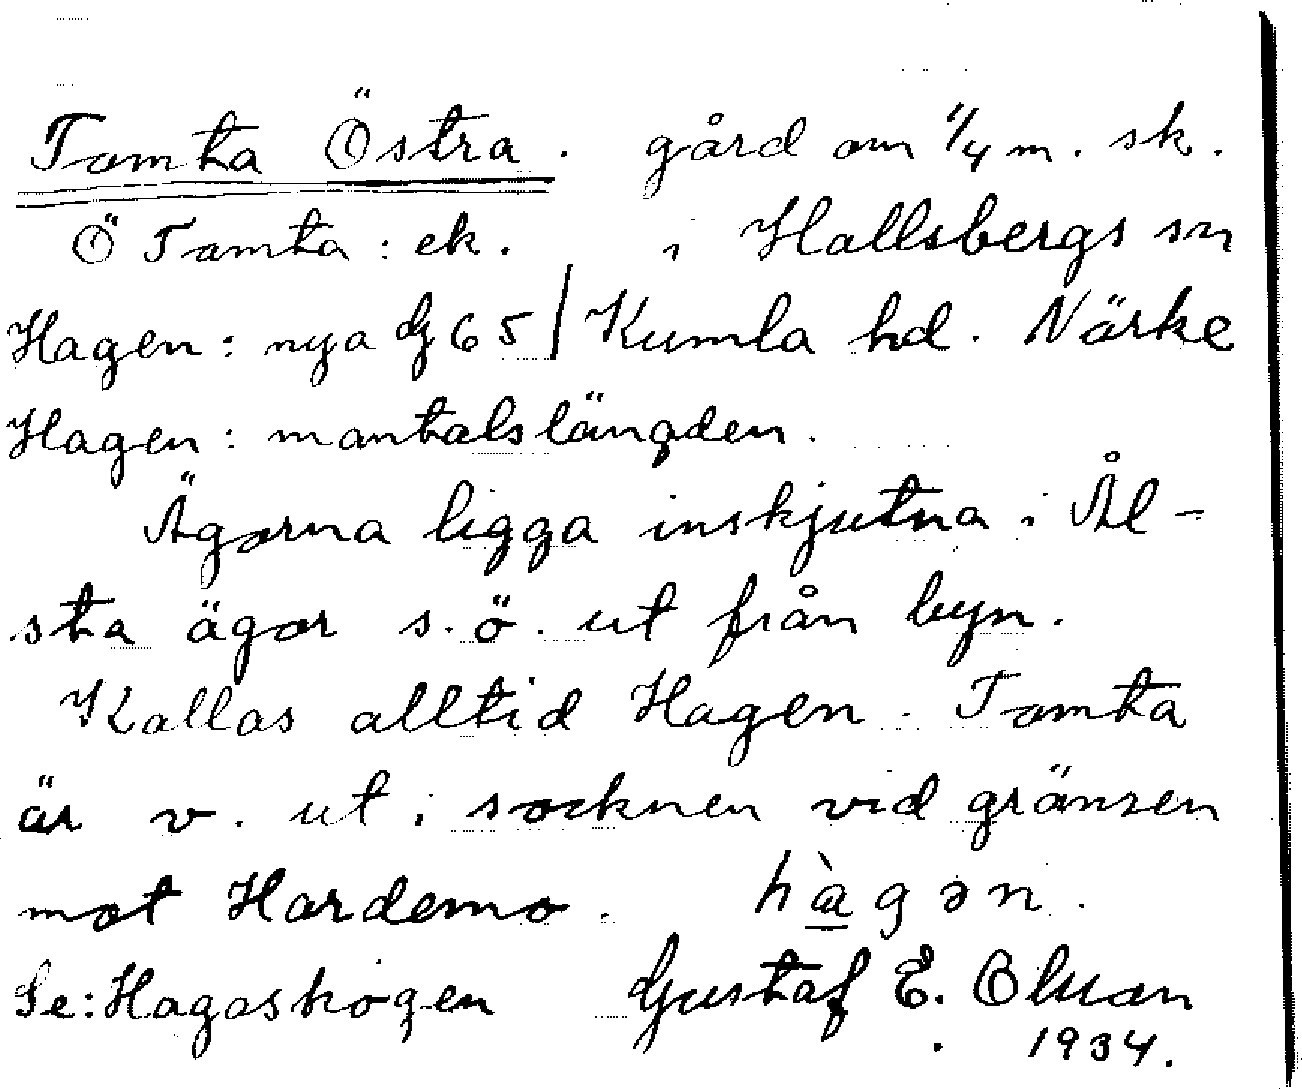 Tomta Östra. gård om 1/4 m. sk.
Ö Tomta: ek. i Hallsbergs sn
Hagen: nya Gj 65 / Kumla hd. Närke
Hagen: mantalslängden.
Ägorna ligga inskjutna i Ål-
sta ägor s.ö. ut från byn.
Kallas alltid Hagen. Tomta
är v. ut i socknen vid gränsen
mot Hardemo. hàgən.
Se: Hagaskogen Gustaf E. Olsson
1934.